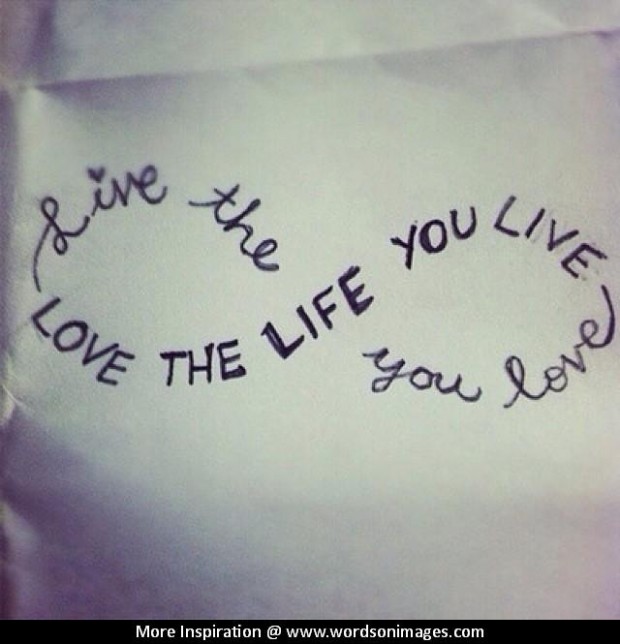 Live the
LOVE THE LIFE YOU LIVE
you love
More Inspiration @ www.wordsonimages.com